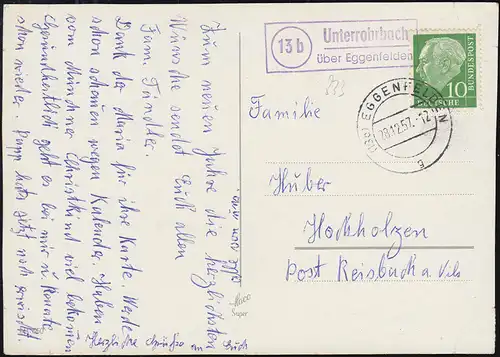 13b
Unterrohrbach
über Eggenfelden
DEUTSCHE
BUNDESPOST
10
EGGENFELDEN
28.12.57.-12
a
Familie
Huber
Hochholzen
Post Reisbach a. Vils
Zum neuen Jahre die herzlichsten
Wünsche sendet Euch allen
Fam. Tändler.
Dank der Maria für ihre Karte. Werde
schon schauen wegen Kalender. Haben
vom Münchner Christkind viel bekommen
Gesundheitlich geht es bei mir
schon wieder. Papp hats jetzt noch erwischt.
Herzliche Grüße an Euch
alle von